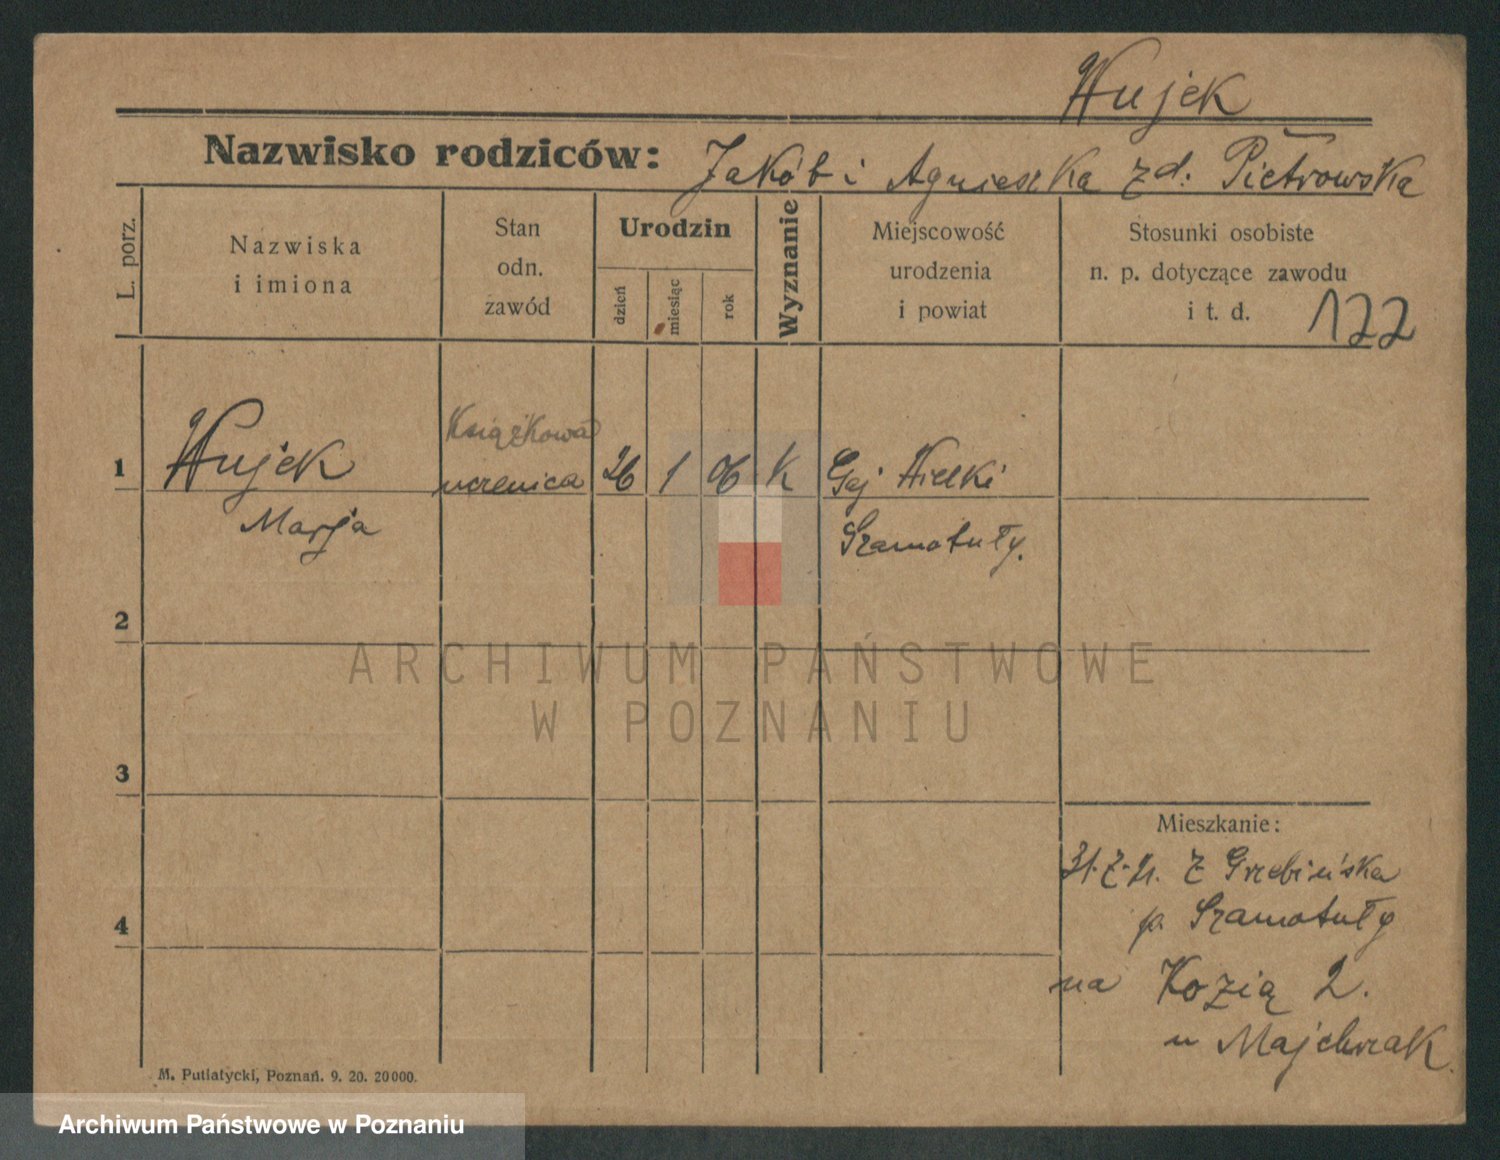 Wujek
Nazwisko rodziców: Jakób i Agnieszka zd. Pietrowska
L. porz.
Nazwiska
i imiona
Stan
odn.
zawód
Urodzin
dzień
miesiąc
rok
Wyznanie
Miejscowość
urodzenia
i powiat
Stosunki osobiste
n. p. dotyczące zawodu
i t. d.
122
Książkowa
1 Wujek uczenica 26 1 06 K Gaj Wielki
Marja Szamotuły.
ARCHIWUM PAŃSTWOWE
W POZNANIU
2
3
Mieszkanie:
31.7.21. z Grzebińska
p. Szamotuły
4
na Kozią 2.
u Majchrzak.
M. Putiatycki, Poznań. 9. 20. 20000.
Archiwum Państwowe w Poznaniu